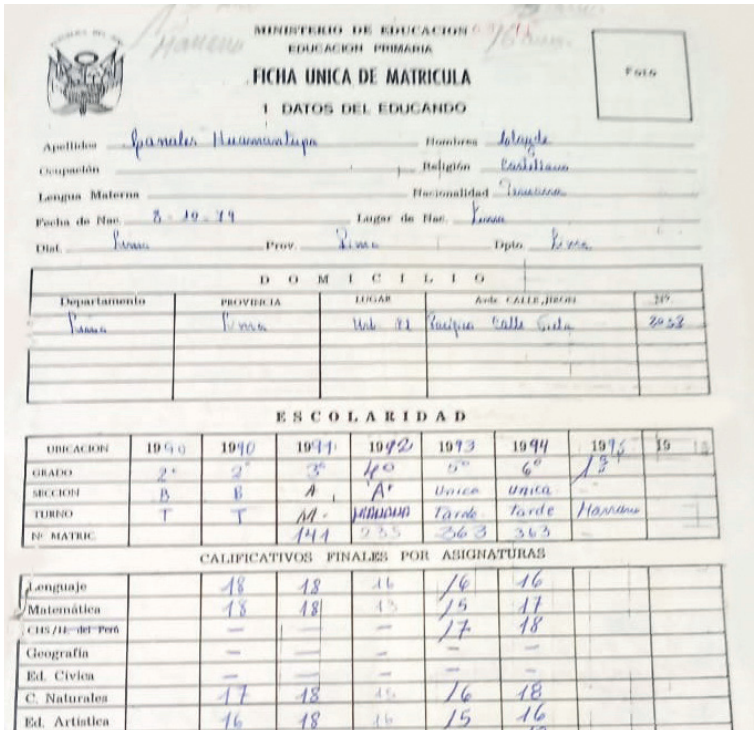 MINISTERIO DE EDUCACION
EDUCACION PRIMARIA
FICHA UNICA DE MATRICULA
1 DATOS DEL EDUCANDO
Foto
Apellidos Canales Huamantupa Nombres
Ocupación Religión Castellano
Lengua Materna Nacionalidad Peruana
Fecha de Nac. 8-10-79 Lugar de Nac. Lima
Dist. Lima Prov. Lima Dpto Lima
DOMICILIO
Departamento PROVINCIA LUGAR Avda CALLE, JIRON Nº
Lima Lima Urb. Pacífico Calle 2058
ESCOLARIDAD
UBICACION 1990 1990 1991 1992 1993 1994 1995 19
GRADO 2° 2° 3° 4° 5° 6° 1°
SECCION B B A "A" Unica Unica
TURNO T T M. MAÑANA Tarde Tarde Mañana
Nº MATRIC. 141 235 363 363
CALIFICATIVOS FINALES POR ASIGNATURAS
Lenguaje 18 18 16 16 16
Matemática 18 18 13 15 17
CHS/H. del Perú — — — 17 18
Geografía — — — — —
Ed. Cívica — — — — —
C. Naturales 17 18 15 16 18
Ed. Artística 16 18 16 15 16